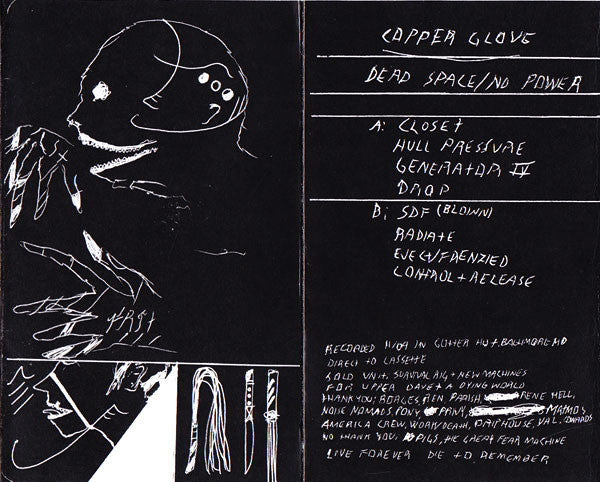 COPPER GLOVE
DEAD SPACE/NO POWER
A: CLOSET
HULL PRESSURE
GENERATOR IV
DROP
B: SDF (BLOWN)
RADIATE
EJECT/FRENZIED
CONTROL + RELEASE
RECORDED 11/09 IN GUTTER HUT. BALTIMORE MD
DIRECT TO CASSETTE
SOLO UNIT. SURVIVAL RIG + NEW MACHINES
FOR UPPER DAVE + A DYING WORLD
THANK YOU; BORGES, BEN, PARISH, RENE HELL,
NOISE NOMADS, PONY PANY, MATMOS
AMERICA CREW, WORMDEATH, DRIPHOUSE, VAL, EDWARDS
NO THANK YOU: PIGS, THE GREAT FEAR MACHINE
LIVE FOREVER DIE TO REMEMBER